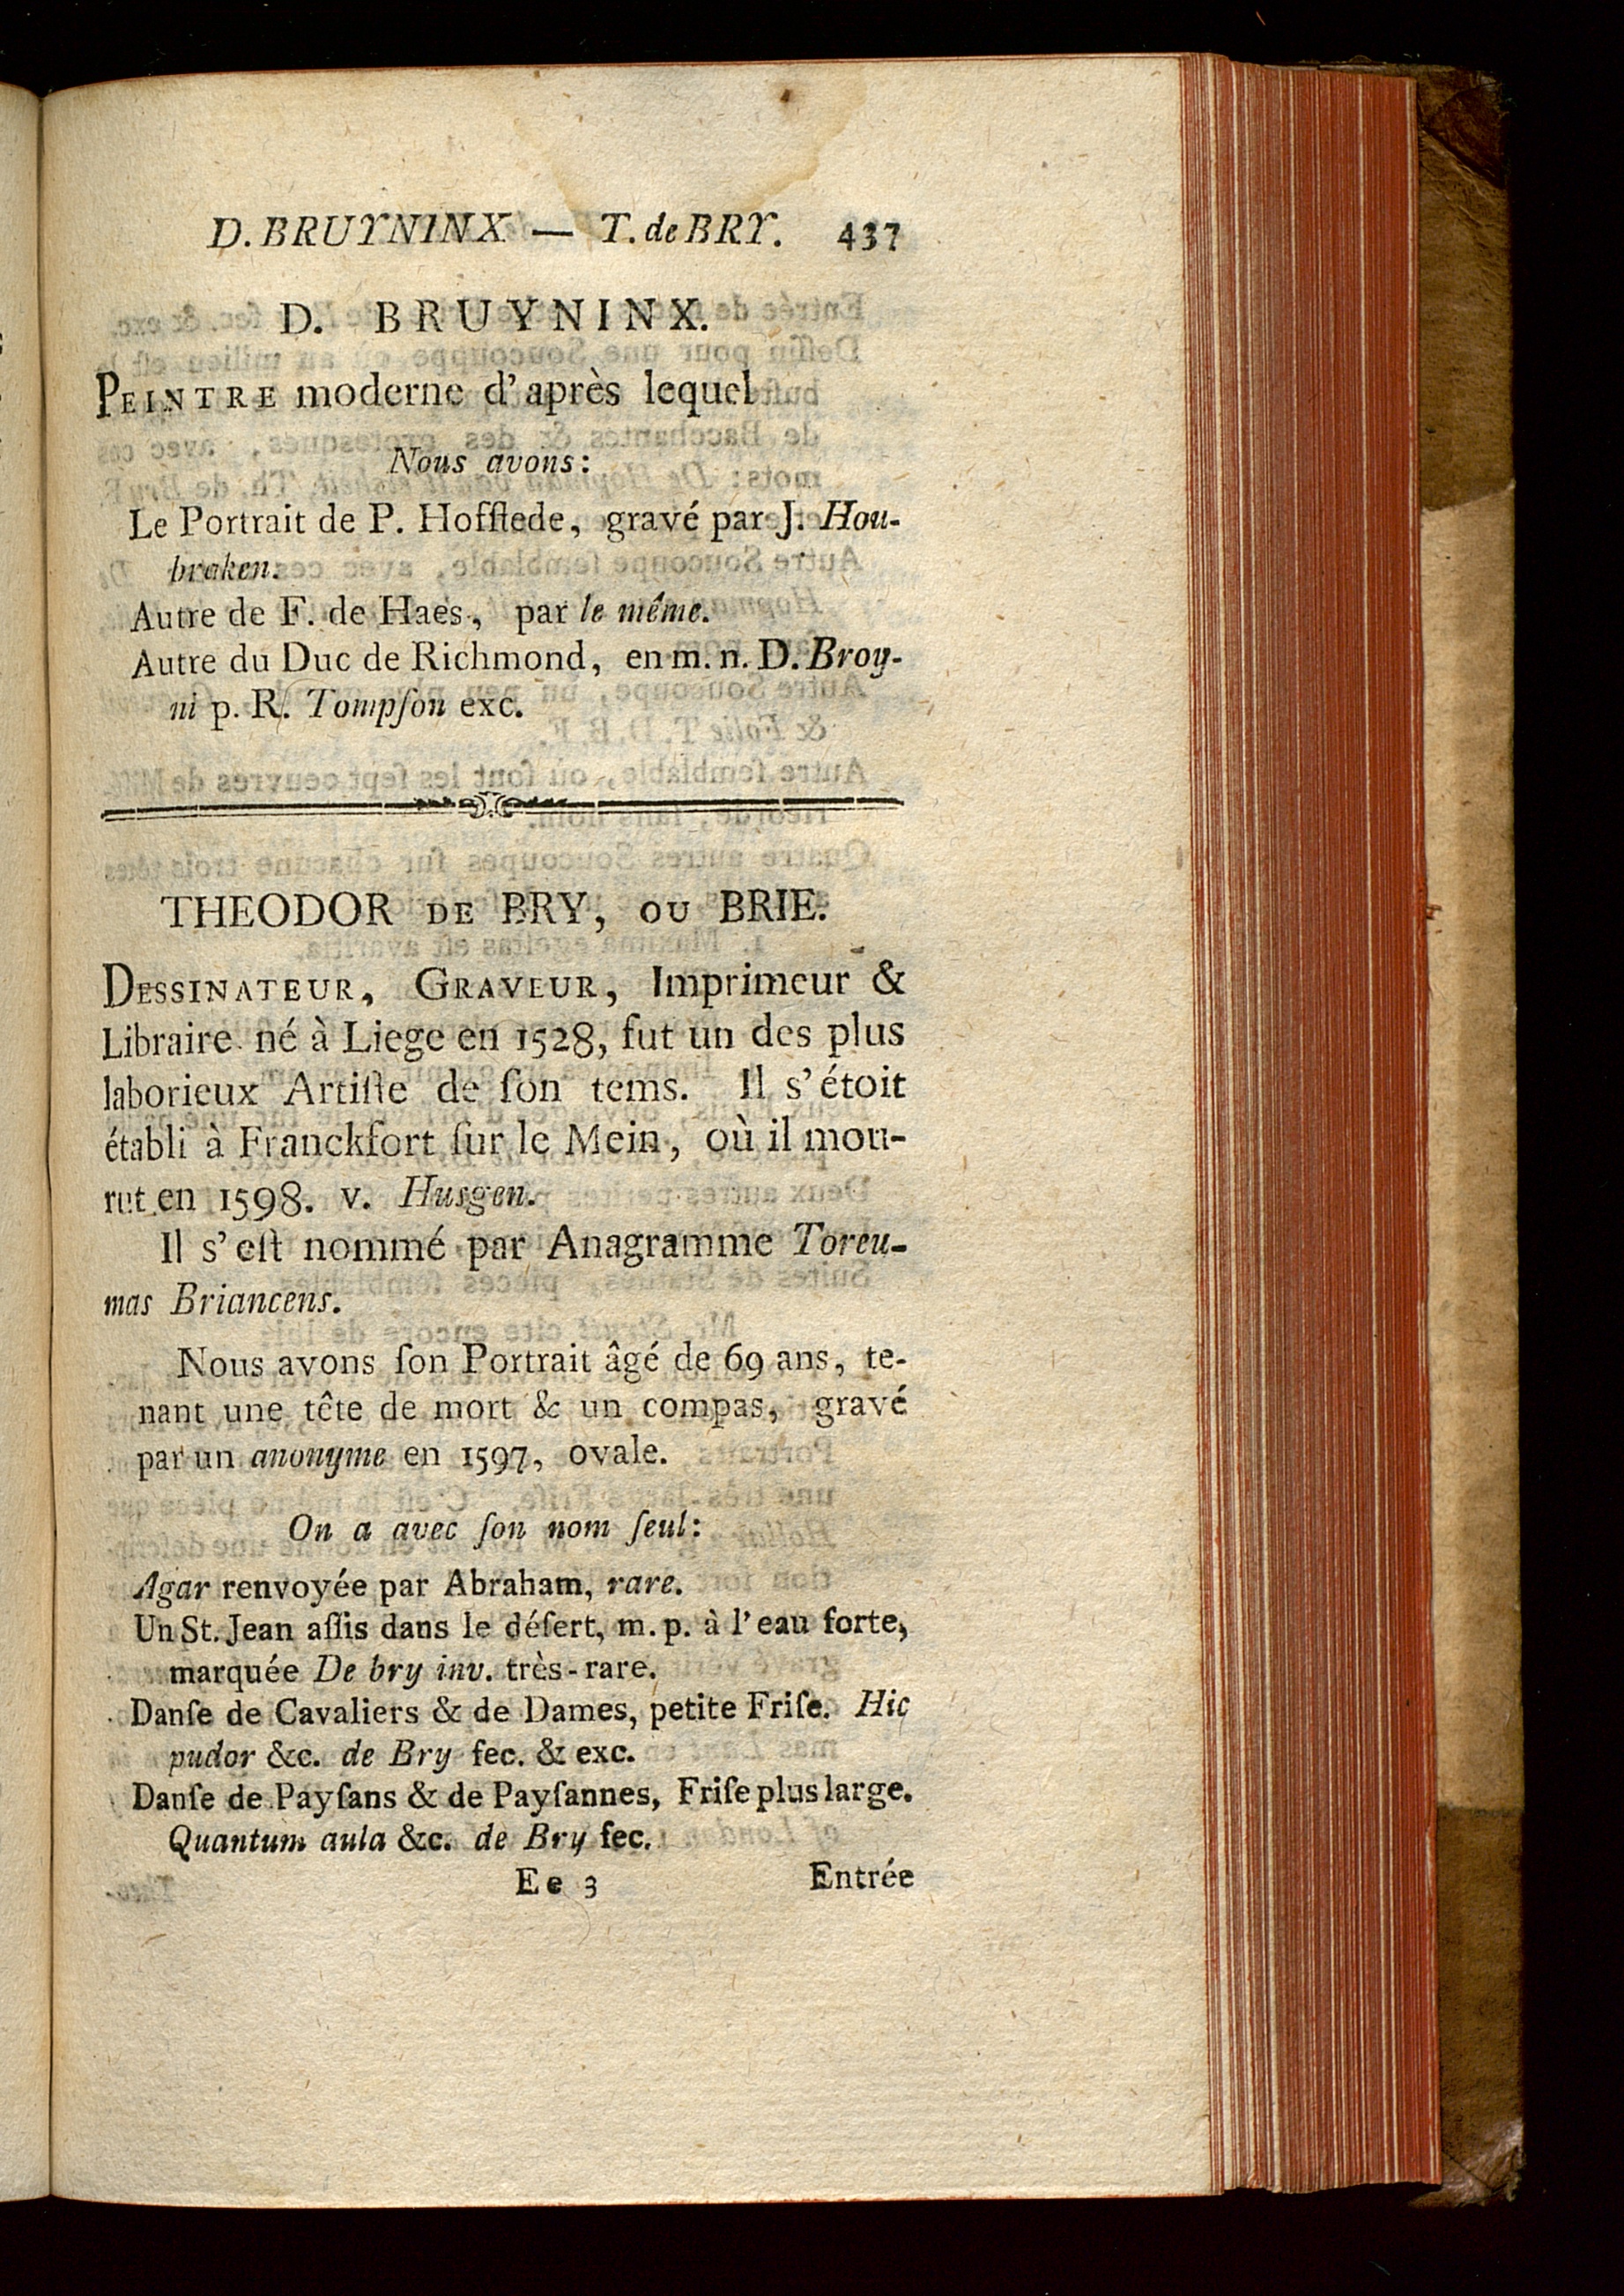 D. BRUYNINX — T. de BRY. 437
D. BRUYNINX.
PEINTRE moderne d'après lequel
Nous avons:
Le Portrait de P. Hofſtede, gravé par J. Hou-
braken.
Autre de F. de Haes, par le même.
Autre du Duc de Richmond, en m. n. D. Broy-
ni p. R. Tompſon exc.
THEODOR DE BRY, OU BRIE.
DESSINATEUR, GRAVEUR, Imprimeur &
Libraire né à Liege en 1528, fut un des plus
laborieux Artiſte de ſon tems. Il s'étoit
établi à Franckfort ſur le Mein, où il mou-
rut en 1598. v. Husgen.
Il s'eſt nommé par Anagramme Toreu-
mas Briancens.
Nous avons ſon Portrait âgé de 69 ans, te-
nant une tête de mort & un compas, gravé
par un anonyme en 1597, ovale.
On a avec ſon nom ſeul:
Agar renvoyée par Abraham, rare.
Un St. Jean aſſis dans le déſert, m. p. à l'eau forte,
marquée De bry inv. très-rare.
Danſe de Cavaliers & de Dames, petite Friſe. Hic
pudor &c. de Bry fec. & exc.
Danſe de Payſans & de Payſannes, Friſe plus large.
Quantum aula &c. de Bry fec.
Ee 3 Entrée